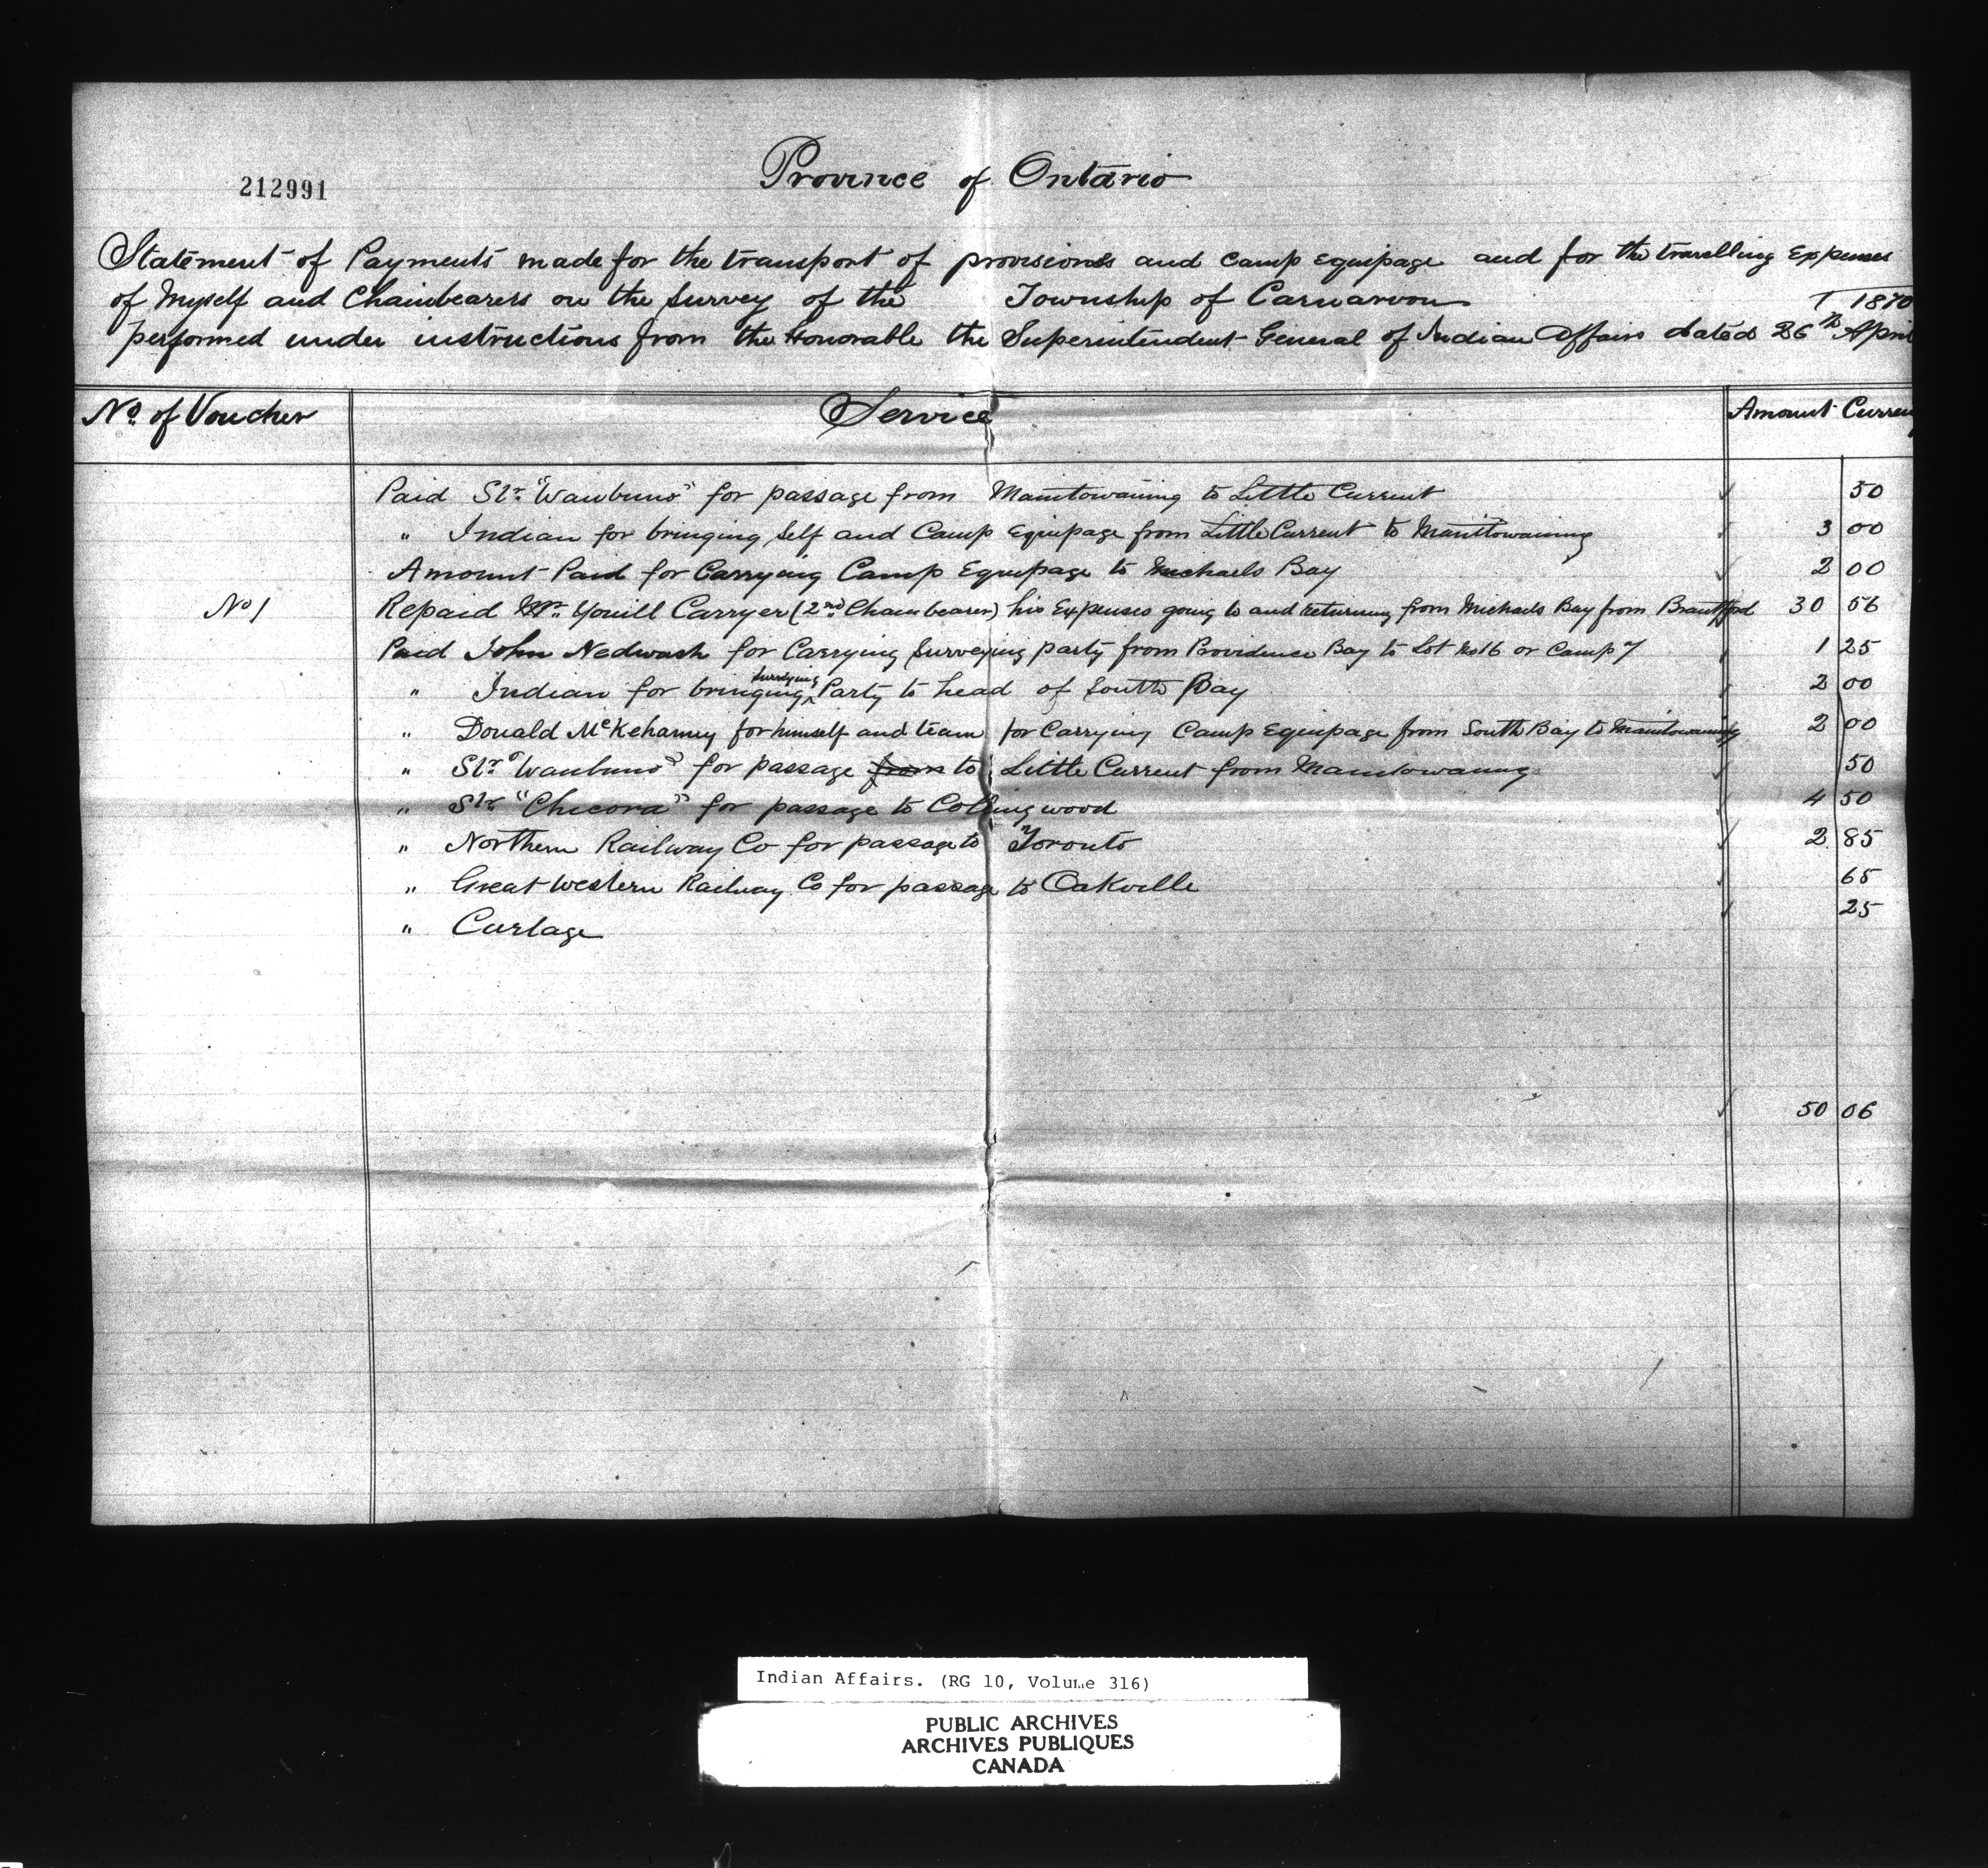 212991
Province of Ontario
Statement of Payments made for the transport of provisions and Camp Equipage and for the travelling Expenses
of Myself and Chainbearers on the Survey of the Township of Carnarvon
performed under instructions from the Honorable the Superintendent General of Indian Affairs dated 26th April 1870
No. of Voucher Service Amount Curren
Paid Str. "Waubuno" for passage from Manitowaning to Little Current 50
" Indian for bringing Self and Camp Equipage from Little Current to Manittowaning 3 00
Amount Paid for Carrying Camp Equipage to Michaels Bay 2 00
No 1 Repaid Youill Carryer (2nd Chainbearer) his Expenses going to and returning from Michaels Bay from Brantford 30 56
Paid John Nedwash for Carrying Surveying party from Providence Bay to Lot No 16 or Camp 7 1 25
" Indian for bringing surveying Party to head of South Bay 2 00
" Donald McKeharney for himself and team for Carrying Camp Equipage from South Bay to Manitowaning 2 00
" Str. "Waubuno" for passage from to Little Current from Manitowaning 50
" Str "Chicora" for passage to Collingwood 4 50
" Northern Railway Co for passage to Toronto 2 85
" Great Western Railway Co for passage to Oakville 65
" Cartage 25
50 06
Indian Affairs. (RG 10, Volume 316)
PUBLIC ARCHIVES
ARCHIVES PUBLIQUES
CANADA